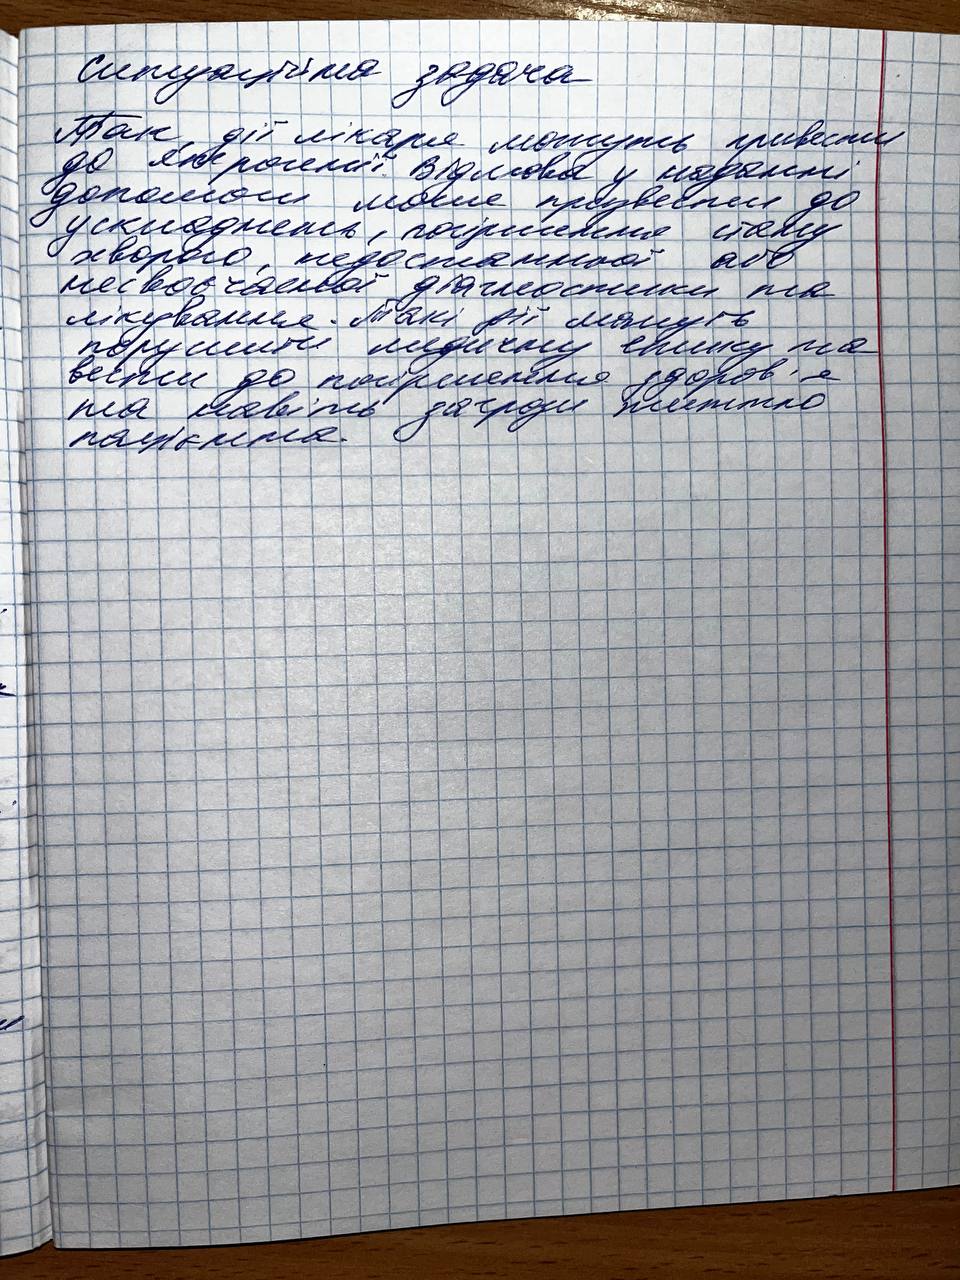 Ситуаційна задача
Так, дії лікаря можуть привести
до ятрогенії. Відмова у наданні
допомоги може призвести до
ускладнень, погіршення стану
хворого, недостатньої або
несвоєчасної діагностики та
лікування. Такі дії можуть
порушити медичну етику та
вести до погіршення здоров'я
та навіть загрози життю
пацієнта.